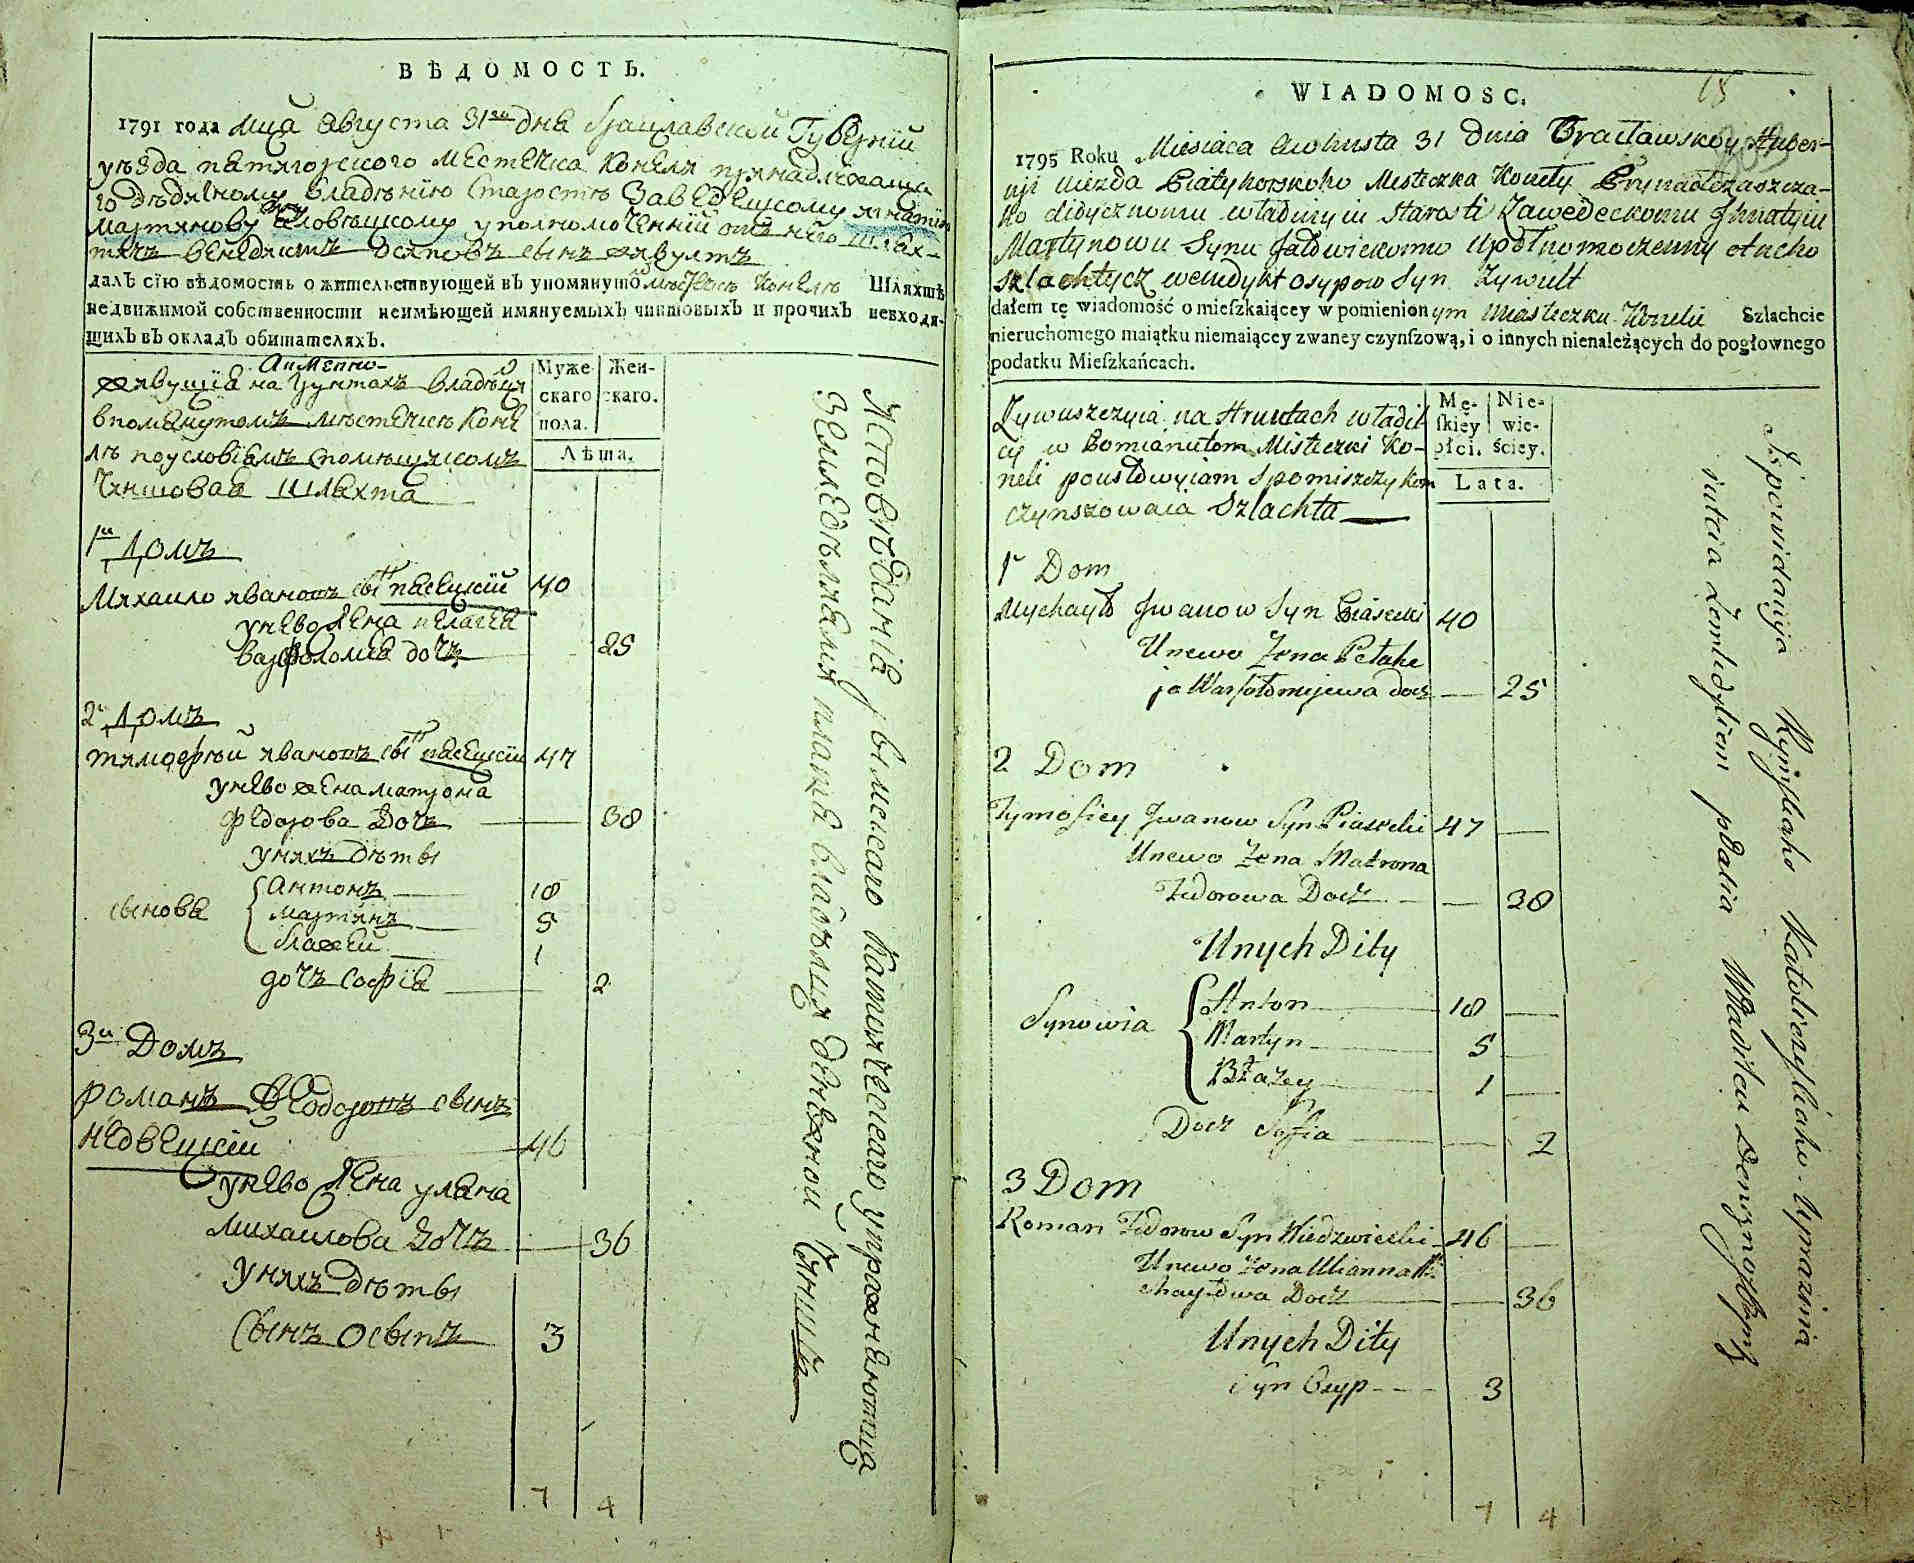 ВѢДОМОСТЬ.
1791 года мца августа 31го дня Брацлавской Губернїи
уѣзда пятигорского местечка Конеля принадлежаща
го дѣдичному владѣнїю Старостѣ Заведецкому игнатїю
мартинову сну упольномоченнїй отъ него шлях-
тичъ венедиктъ осиповъ сынъ живултъ
далъ сїю вѣдомость о жительствующей въ упомянутомъ мѣстечкѣ Конелѣ Шляхтѣ
недвижимой собственности неимѣющей имянуемыхъ чиншовыхъ и прочихъ невходя-
щихъ въ окладъ обитателяхъ.
Аименно
живущия на грунтахъ владѣлца
впомянутомъ мѣстечкѣ Коне
лѣ поусловїямъ спомѣщикомъ
Чиншовая шляхта
Муже-
скаго
пола.
Жен-
скаго.
Лѣта.
1й Домъ
Михаило ивановъ сынъ пясецкїй 40
унево жена пелагея
варфоломея дочь 25
2й Домъ
тимофѣй ивановъ сынъ пясецкїй 47
унево жена матрона
федорова дочь 38
унихъ дѣти
сыновя
Антонъ 18
мартинъ 5
блажей 1
дочь софїя 2
3й Домъ
романъ Феодоровъ сынъ
недвецкїй 46
унево жена уляна
михаилова дочь 36
унихъ дѣти
Сынъ осыпъ 3
7 4
Исповѣданїя римскаго католическаго упражняютця
Земледѣлиемъ платя владѣлцу денежной Чиншъ
WIADOMOSC.
18
1795 Roku Miesiaca Awhusta 31 dnia Bracławskoy Huber-
nji uiezda Piatyhorskoho Misteczka Koneły Prynadłezaszcza-
ho didycznomu władiniju Starosti Zawedeckomu Jhnatyiu
Martynowu Synu upołnomoczennyj otneho
szlachtycz wenedykt Osypow Syn Zywult
dałem tę wiadomość o mieſzkaiącey w pomienionym Miasteczku Konelu Szlachcie
nieruchomego maiątku niemaiącey zwaney czynſzową, i o innych nienależących do pogłownego
podatku Mieſzkańcach.
Zywuszczyia na Hruntach władil
cy w Pomianutom Misteczki Ko-
neli pousłowyiam Spomiszczykom
czynszowaia Szlachta
Mę-
ſkiey
płci.
Nie-
wie-
ściey.
Lata.
1 Dom
Mychayło Jwanow Syn Piasecki 40
Unewo Zena Pełahe
ja Warfołomijewa docz 25
2 Dom
Tymofiey Jwanow Syn Piasecki 47
Unewo Zena Matrona
Fedorowa Docz 38
Unych Dity
Synowia
Anton 18
Martyn 5
Błazey 1
Docz Sofia 2
3 Dom
Roman Fedorow Syn Niedzwiecki 46
Unewo Zona Ulianna Mi
chayłowa Docz 36
Unych Dity
Syn Osyp 3
7 4
Jspowidanija Rymskaho Katoliczeskaho Upraznia
iutcia Zemlidyliem płatia Władilcu Deneznoj Czynsz